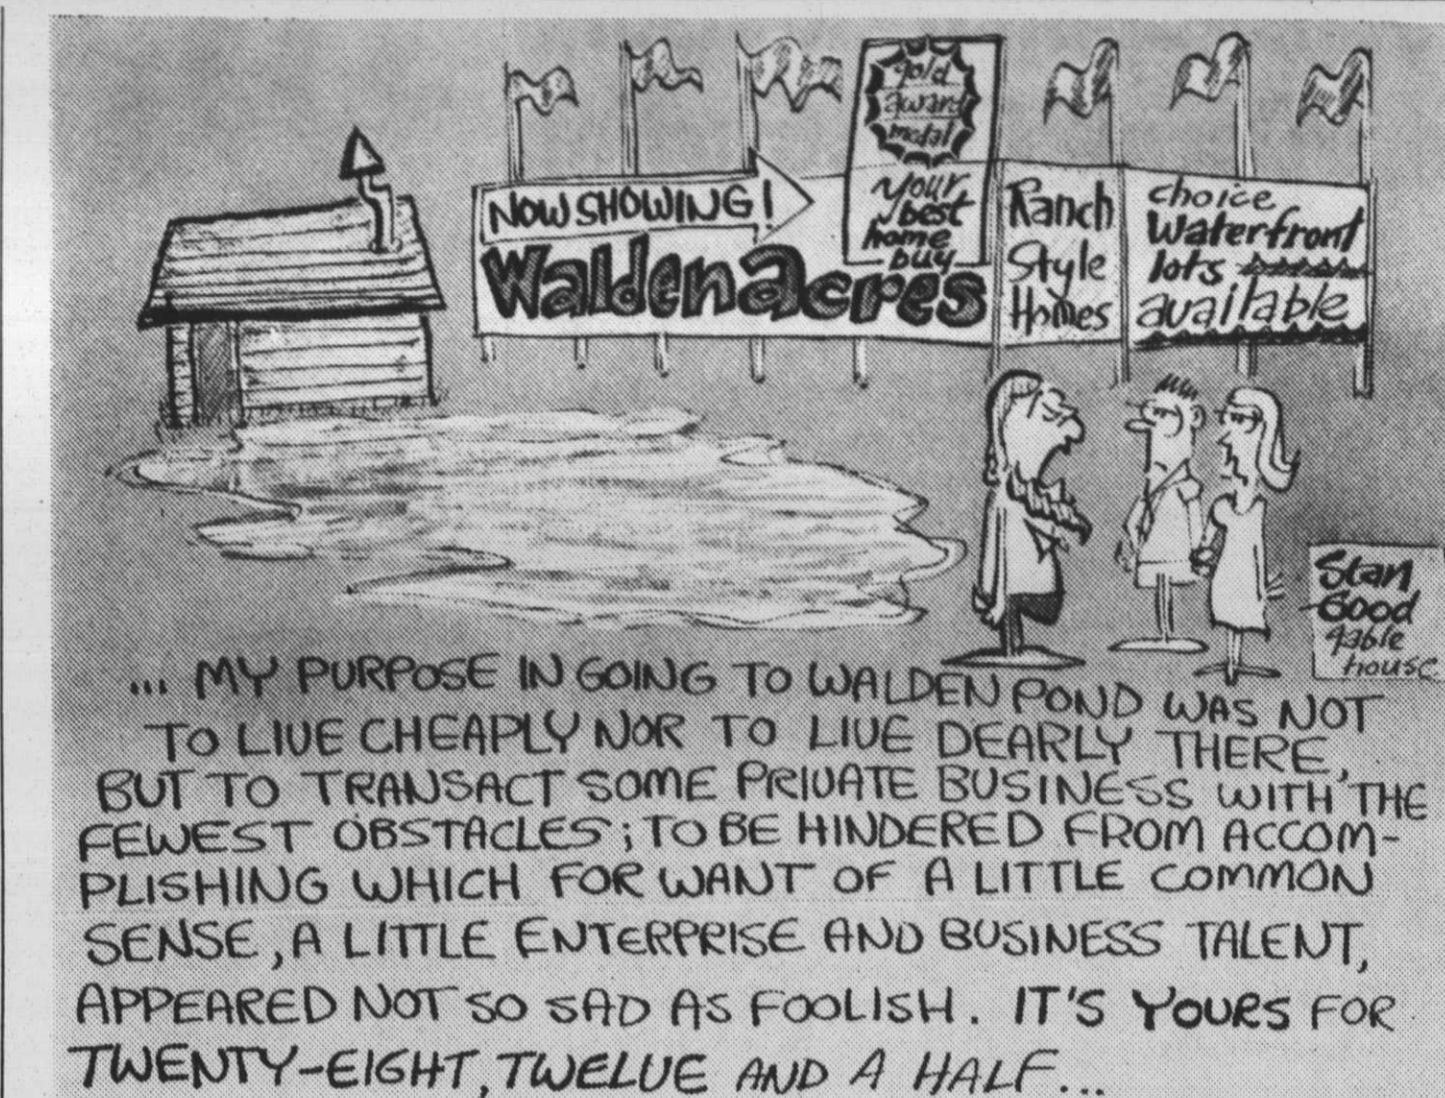 gold
award
medal
NOW SHOWING!
your
best
home
buy
Walden acres
Ranch
Style
Homes
choice
Waterfront
lots
available
Stan
Good
gable
house
... MY PURPOSE IN GOING TO WALDEN POND WAS NOT
TO LIVE CHEAPLY NOR TO LIVE DEARLY THERE,
BUT TO TRANSACT SOME PRIVATE BUSINESS WITH THE
FEWEST OBSTACLES; TO BE HINDERED FROM ACCOM-
PLISHING WHICH FOR WANT OF A LITTLE COMMON
SENSE, A LITTLE ENTERPRISE AND BUSINESS TALENT,
APPEARED NOT SO SAD AS FOOLISH. IT'S YOURS FOR
TWENTY-EIGHT, TWELVE AND A HALF...